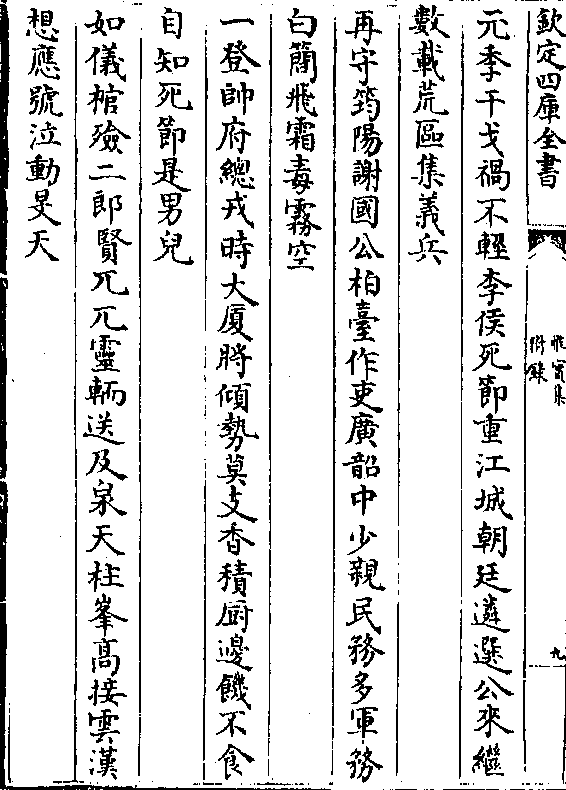 欽定四庫全書
惟實集
附錄
九
元季干戈禍不輕李侯死節重江城朝廷遴選公來繼
數載荒區集義兵
再守筠陽謝國公柏臺作吏廣韶中少親民務多軍務
白簡飛霜毒霧空
一登帥府總戎時大厦將傾勢莫支香積厨邊饑不食
自知死節是男兒
如儀棺殮二郎賢兀兀靈輀送及泉天柱峯髙接雲漢
想應號泣動旻天